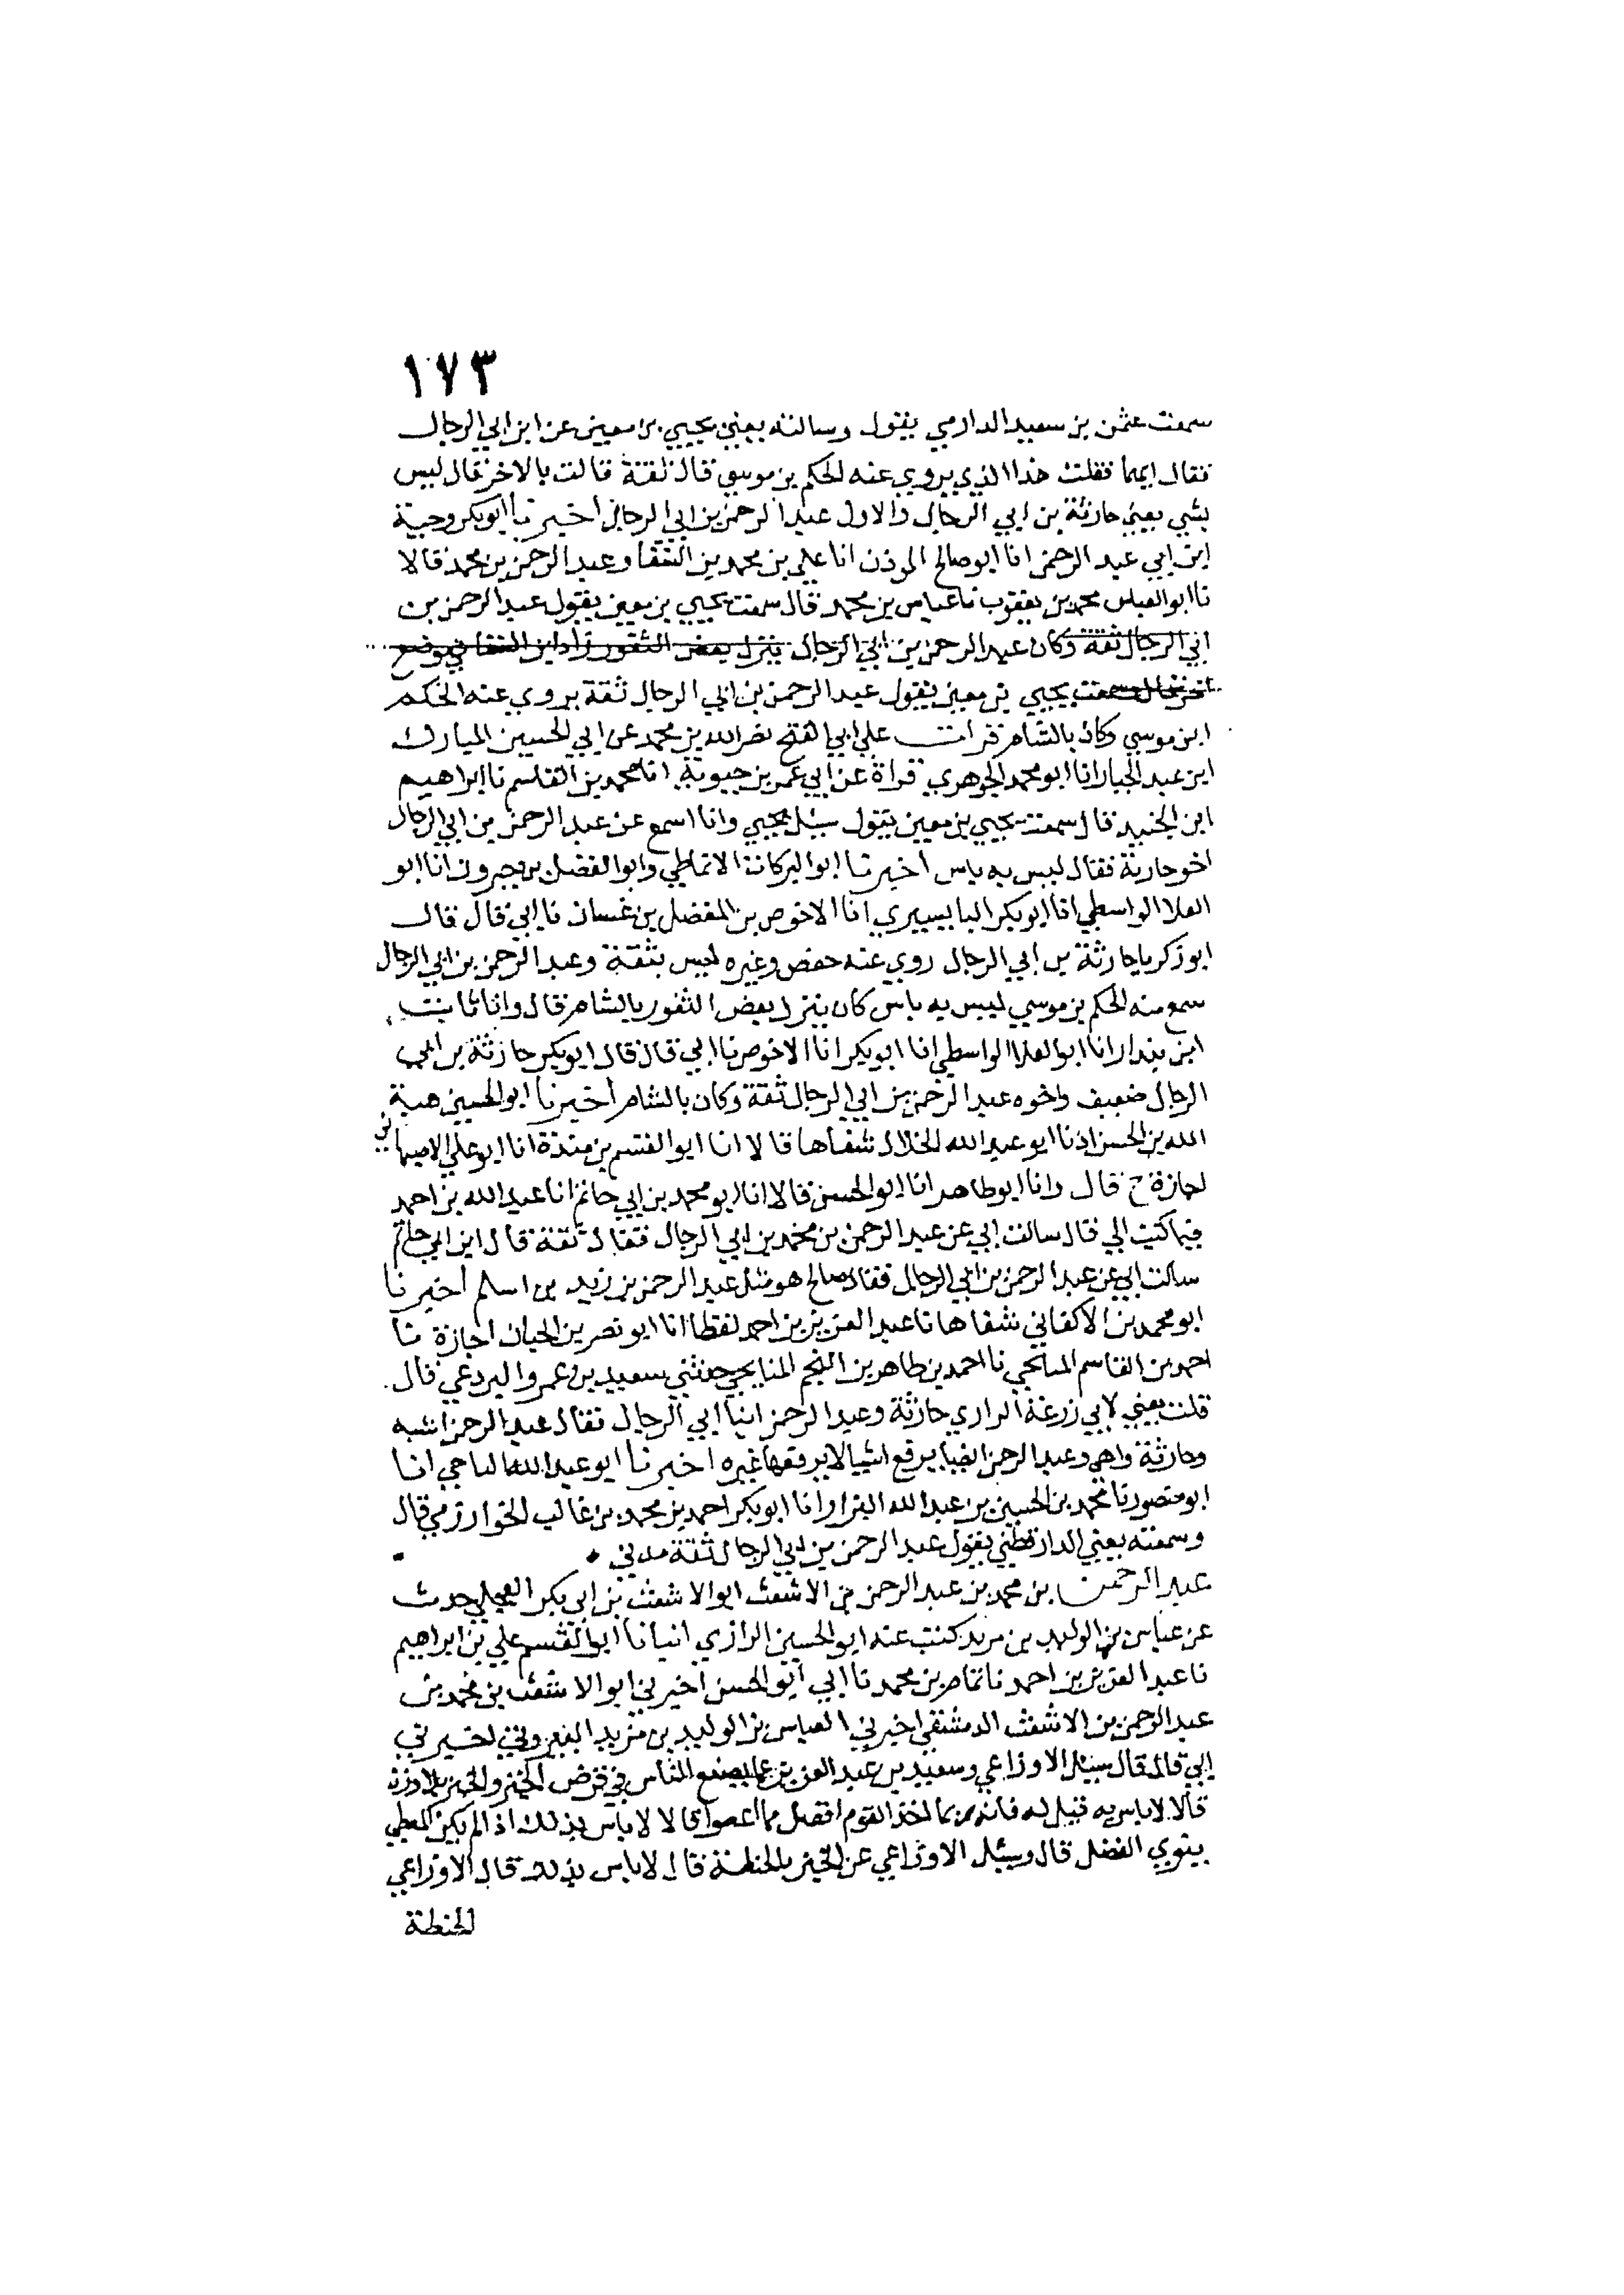 ١٧٣
سمعت عثمن بن سعيد الدارمي يقول وسالته يعني يحيي بن معين عن ابن ابي الرجال
فقال ايهما فقلت هذا الذي يروي عنه الحكم بن موسي قال ثقة قالت بالاخر قال ليس
بشي يعني حارثة بن ابي الرجال والاول عبد الرحمن بن ابي الرجال اخبرنا ابو بكر وجيه
ابن ابي عبد الرحمن انا ابو صالح الموذن انا علي بن محمد بن السقا وعبد الرحمن بن محمد قالا
نا ابو العباس محمد بن يعقوب نا عباس بن محمد قال سمعت يحيي بن معين يقول عبد الرحمن بن
ابي الرجال ثقة وكان عبد الرحمن بن ابي الرجال ينزل بعض الثغور زاد ابن السقا في موضع
اخر قال سمعت يحيي بن معين يقول عبد الرحمن بن ابي الرجال ثقة يروي عنه الحكم
ابن موسي وكان بالشام قرات علي ابي الفتح نصر الله بن محمد عن ابي الحسين المبارك
ابن عبد الجبار انا ابو محمد الجوهري قراة عن ابي عمر بن حيوية انا محمد بن القاسم نا ابراهيم
ابن الجنيد قال سمعت يحيي بن معين يقول سئل يحيي وانا اسمع عن عبد الرحمن بن ابي الرجال
اخو حارثة فقال ليس به باس اخبرنا ابو البركات الانماطي وابو الفضل بن خيرون انا ابو
العلا الواسطي انا ابو بكر البابسيري انا الاحوص بن المفضل بن غسان نا ابي قال قال
ابو زكريا حارثة بن ابي الرجال روي عنه حفص وغيره ليس بثقة وعبد الرحمن بن ابي الرجال
سمع منه الحكم بن موسي ليس به باس كان ينزل بعض الثغور بالشام قال وانا ثابت
ابن بندار انا ابو العلا الواسطي انا ابو بكر انا الاحوص نا ابي قال قال ابو بكر حارثة بن ابي
الرجال ضعيف واخوه عبد الرحمن بن ابي الرجال ثقة وكان بالشام اخبرنا ابو الحسين هبة
الله بن الحسن اذنا ابو عبد الله الخلال شفاها قالا انا ابو القسم بن مندة انا ابو علي الاصبهاني
اجازة ح قال وانا ابو طاهر انا ابو الحسن قالا انا ابو محمد بن ابي حاتم انا عبد الله بن احمد
فيما كتب الي قال سالت ابي عن عبد الرحمن بن محمد بن ابي الرجال فقال ثقة قال ابن ابي حاتم
سالت ابي عن عبد الرحمن بن ابي الرجال فقال صالح هو مثل عبد الرحمن بن زيد بن اسلم اخبرنا
ابو محمد بن الاكفاني شفاها نا عبد العزيز بن احمد لفظا انا ابو نصر بن الجبان اجازة نا
احمد بن القاسم الميانجي نا احمد بن طاهر بن النجم الميانجي حدثني سعيد بن عمرو البردعي قال
قلت يعني لابي زرعة الرازي حارثة وعبد الرحمن ابنا ابي الرجال فقال عبد الرحمن اشبه
وحارثة واهي وعبد الرحمن ايضا يرفع اشيا لا يرفعها غيره اخبرنا ابو عبد الله البلخي انا
ابو منصور نا محمد بن الحسين بن عبد الله البزار انا ابو بكر احمد بن محمد بن غالب الخوارزمي قال
وسمعته يعني الدارقطني يقول عبد الرحمن بن ابي الرجال ثقة مدني
عبد الرحمن بن محمد بن عبد الرحمن بن الاشعث ابو الاشعث بن ابي بكر العجلي حدث
عن عباس بن الوليد بن مزيد كتب عنه ابو الحسين الرازي انبانا ابو القسم علي بن ابراهيم
نا عبد العزيز بن احمد نا تمام بن محمد نا ابي ابو الحسن اخبرني ابو الاشعث بن محمد بن
عبد الرحمن بن الاشعث الدمشقي اخبرني العباس بن الوليد بن مزيد البيروتي اخبرني
ابي قال قال سئل الاوزاعي وسعيد بن عبد العزيز عما يصنع الناس في قرض الخبز والخبز بلا وزن
قالا لا باس به فقيل له فانه ربما اخذ القوم افضل مما اعطوا قالا لا باس بذلك اذ لم يكن المعطي
ينوي الفضل قال وسئل الاوزاعي عن الخبز بالحنطة قال لا باس بذلك قال الاوزاعي
الحنطة